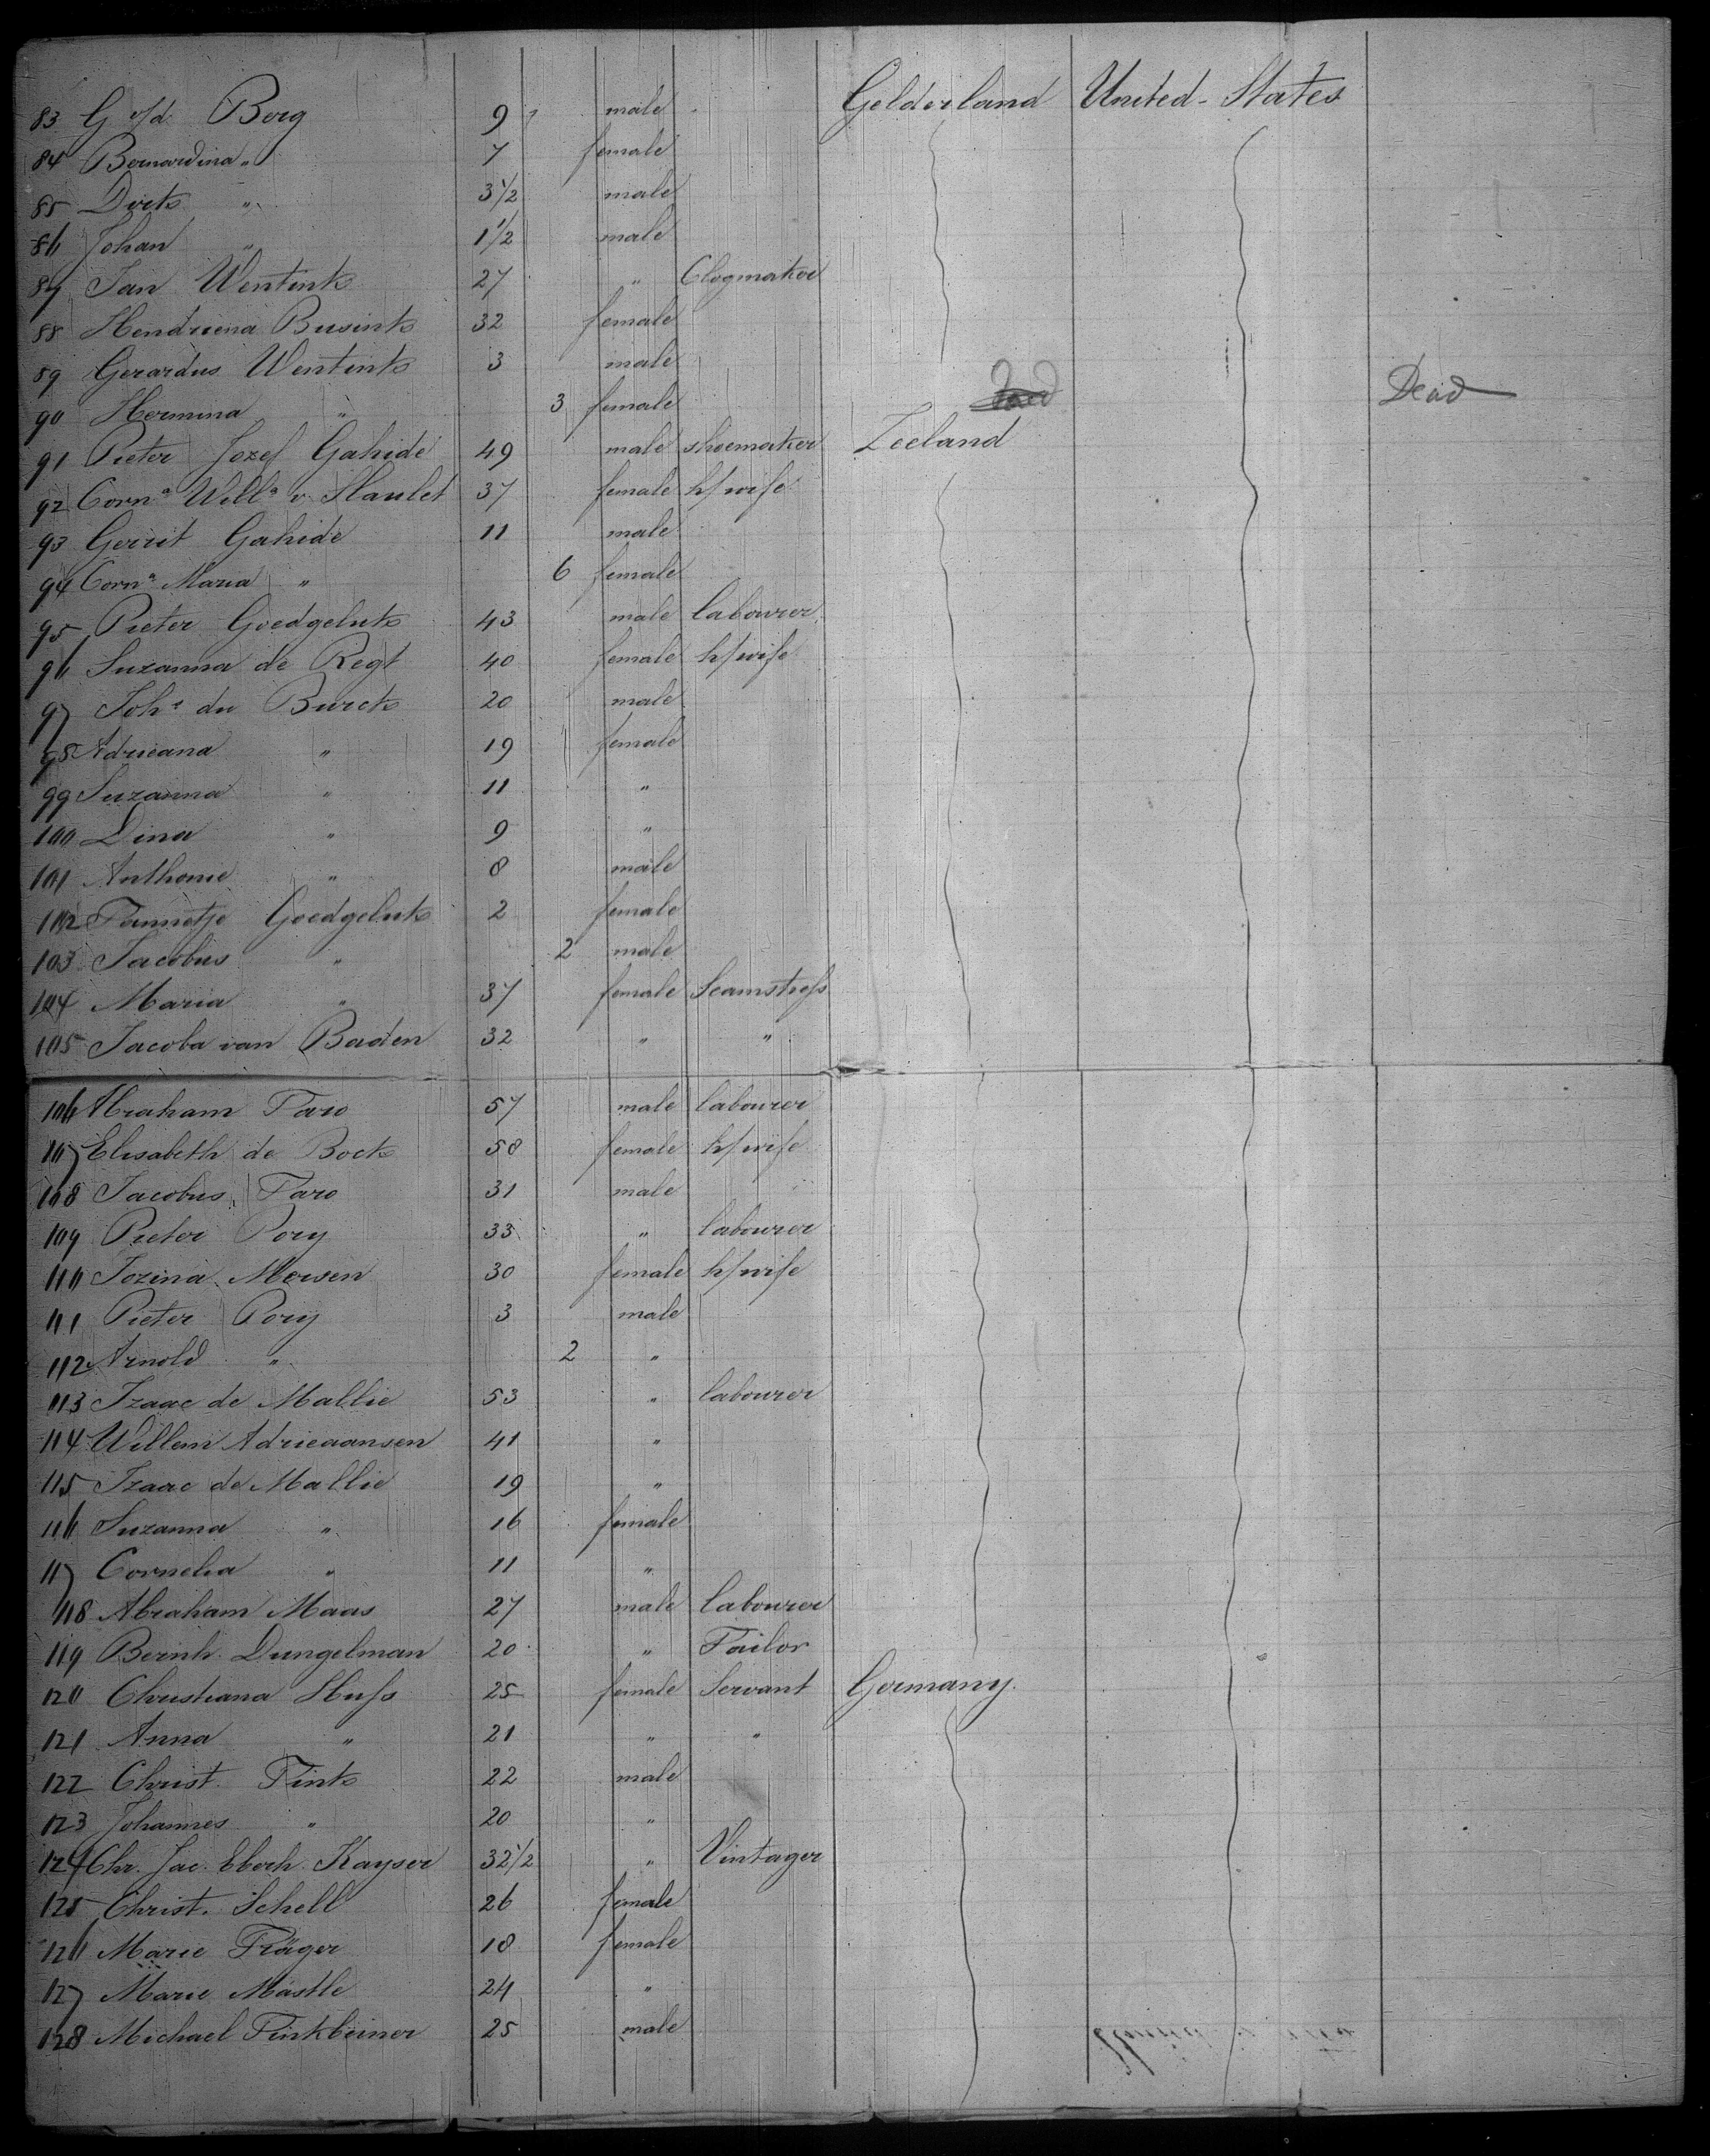 83 G v/d Berg 9 male Gelderland United-States
84 Bernardina " 7 female
85 Dirk " 3 1/2 male
86 Johan " 1 1/2 male
87 Jan Wentink 27 " Clogmaker
88 Hendriena Busink 32 female
89 Gerardus Wentink 3 male
90 Hermina " 3 female Dead
91 Pieter Jozef Gahide 49 male shoemaker Zeeland
92 Corna Willa v. Haulet 37 female h/wife
93 Gerrit Gahide 11 male
94 Corna Maria " 6 female
95 Pieter Goedgeluk 43 male labourer
96 Suzanna de Regt 40 female h/wife
97 Joha du Burck 20 male
98 Adrieana " 19 female
99 Suzanna " 11 "
100 Dina " 9 "
101 Anthonie " 8 male
102 Pannetje Goedgeluk 2 female
103 Jacobus " 2 male
104 Maria " 37 female Seamstress
105 Jacoba van Baden 32 " "
106 Abraham Faro 57 male labourer
107 Elisabeth de Bock 58 female h/wife
108 Jacobus Faro 31 male
109 Pieter Pory 33 " labourer
110 Jozina Mersen 30 female h/wife
111 Pieter Pory 3 male
112 Arnold " 2 "
113 Izaac de Mallie 53 " labourer
114 Willem Adrieaansen 41 "
115 Izaac de Mallie 19 "
116 Suzanna " 16 female
117 Cornelia " 11 "
118 Abraham Maas 27 male labourer
119 Bernh. Dungelman 20 " Tailor
120 Christiana Huss 25 female Servant Germany.
121 Anna " 21 " "
122 Christ. Fink 22 male
123 Johannes " 20 "
124 Chr. Jac. Eberh. Kayser 32 1/2 " Vintager
125 Christ. Schell 26 female
126 Marie Träger 18 female
127 Marie Mästle 24 "
128 Michael Finkbeiner 25 male